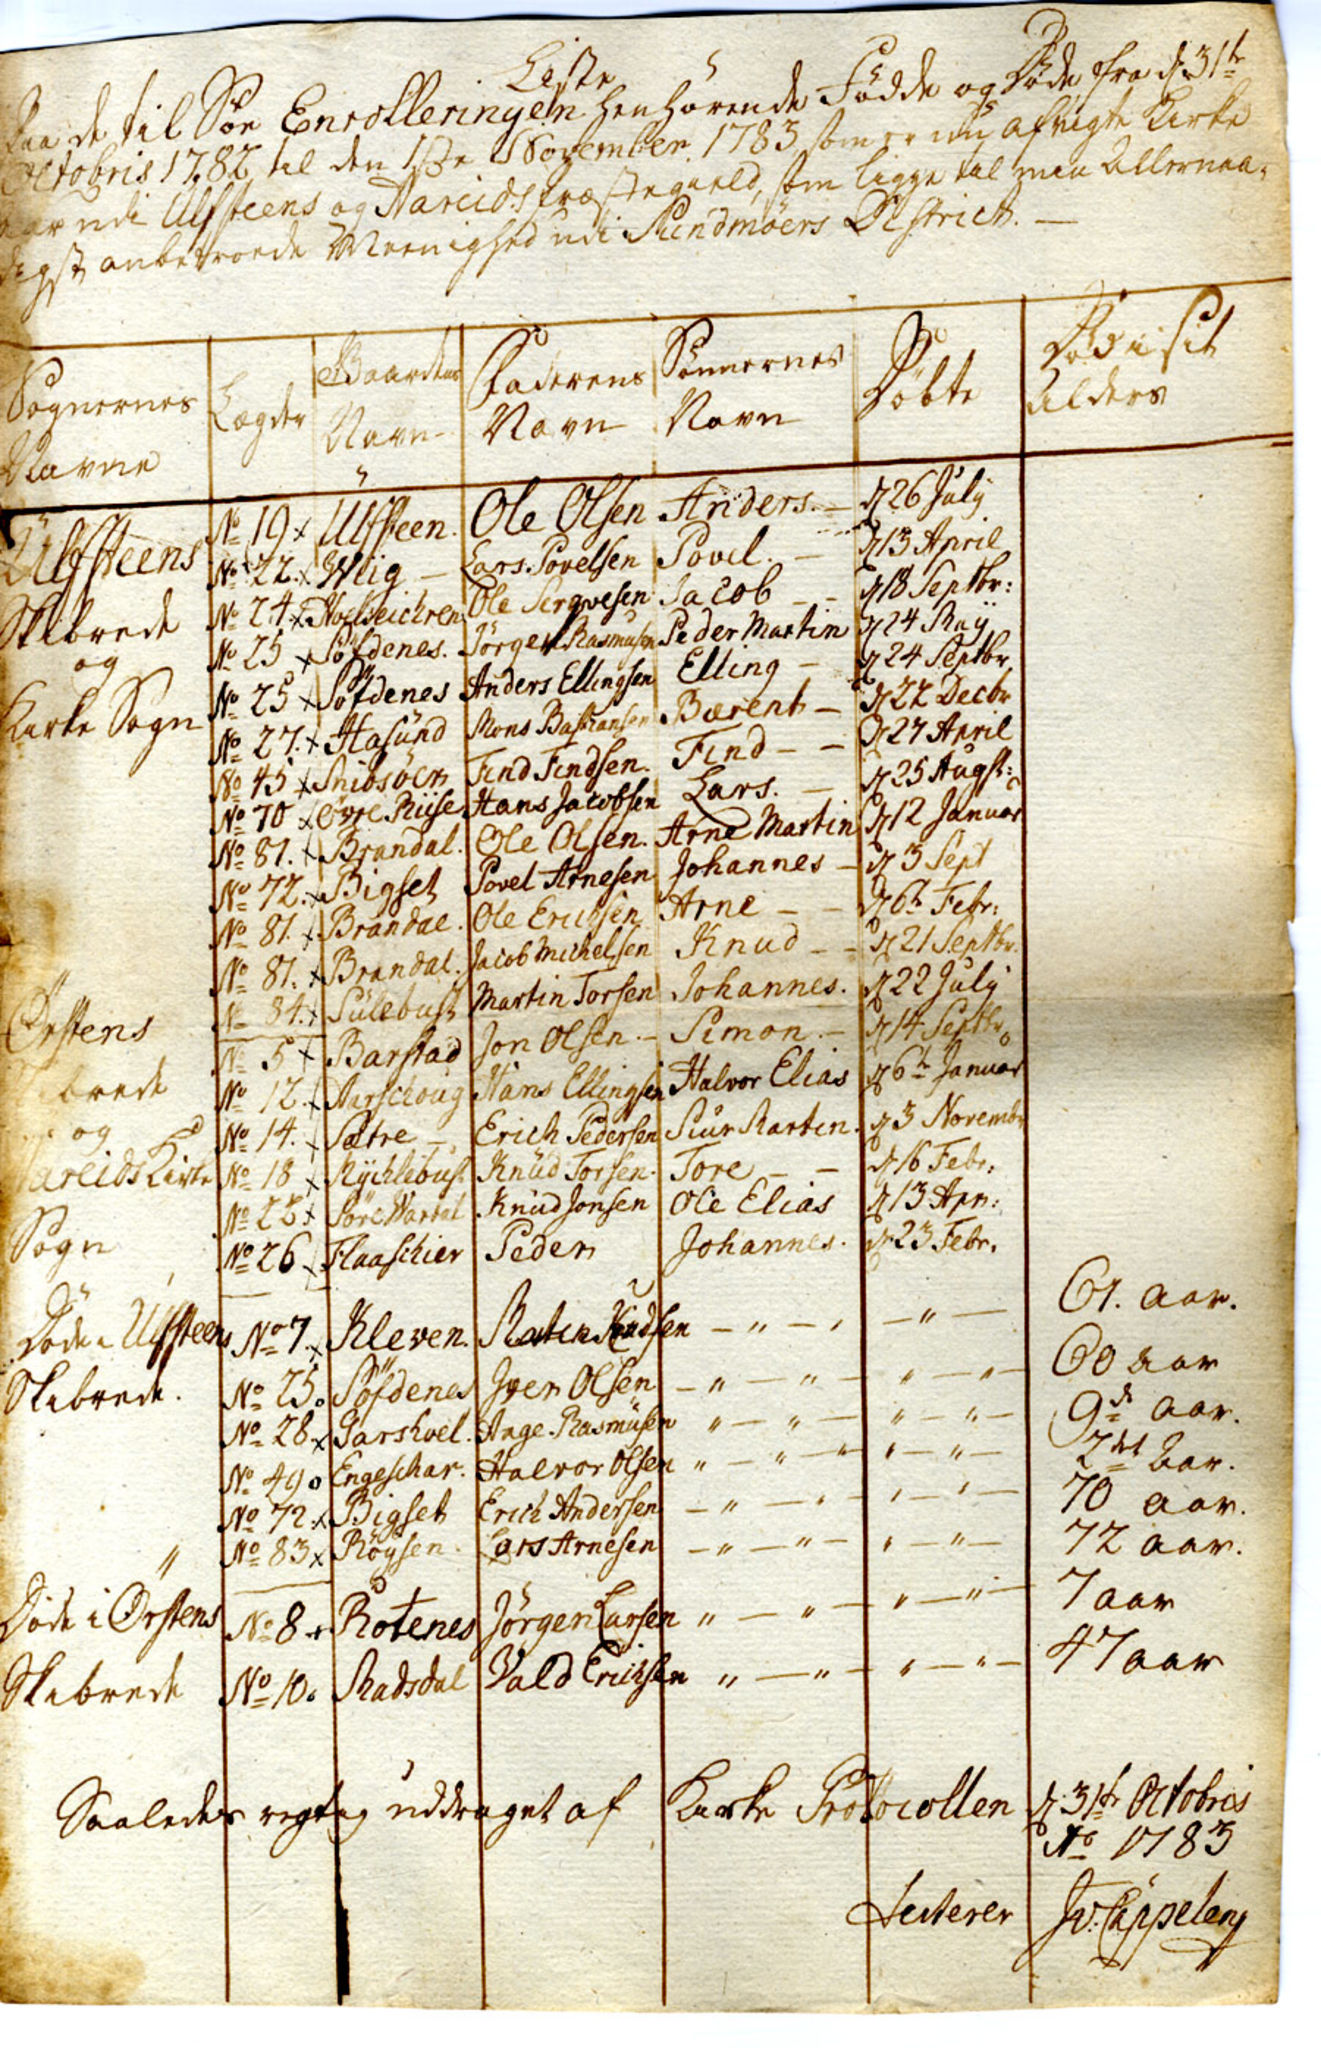 Liste
Paa de til Søe Enrolleringen henhørende Fødde og Døde fra d. 31te
Octobris 1782 til den 1ste November 1783 som er udi afvigte Kirke
aar udi Ulfsteens og Hareids Præstegield, som ligge til min Allernaa-
digst anbetroede Meenighed udi Sundmøers District. —
Sognernes Navne | Lægder | Gaardens Navn | Faderens Navn | Sønnernes Navn | Døbte | Død i sit Alders
Ülfsteens | No 19 x | Ülfsteen. | Ole Olsen | Anders. — | d 26 July
No 22. x | Wiig — | Lars Povelsen | Povel. — | d 13 April
Skibrede | No 24 x | Ole | Jacob — | d 18 Septbr:
og | No 25 x | Søfdenes. | Jörgen Rasmusen | Peder Martin | d 24
No 25 x | Søfdenes | Anders Ellingsen | Elling — | d 24 Septbr
Kirke Sogn | No 27. x | Hasünd | Mons Bastiansen | Bærent — | d 22 Decbr
No 45 x | Find Findsen. | Find — | d 27 April
No 70 x | Øvre Riise | Hans Jacobsen | Lars. — | d 25 Augst:
No 81. x | Brandal. | Ole Olsen. | Arne Martin | d 12 Januar
No 72. x | Bigset | Povel Arnesen | Johannes — | d 3 Sept
No 81. x | Brandal. | Ole Ericksen | Arne — | d 6te Febr:
No 81. x | Brandal. | Jacob Michelsen | Knud — | d 21 Septbr.
No 84. x | Sülebust | Martin Torsen | Johannes. | d 22 July
Ørstens | No 5 x | Barstad | Jon Olsen. — | Simon. — | d 14 Septbr
brede | No 12. x | Aarschoug | Hans Ellingsen | Halvor Elias | d 6te Januar
og | No 14. | Sætre — | Erich Pedersen | Siur Martin. | d 3 Novembr
Hareids Kirke | No 18 x | Rychlebust | Knüd Torsen. | Tore — | d 16 Febr:
No 22 x | Søre Wartal | Knüd Jonsen | Ole Elias | d 13 Apr:
Sogn | No 26 x | Flaaschier | Peder | Johannes. | d 23 Febr.
Døde i Ulfsteens | No 7. x | Kleven. | Knudsen — " — " — " — | 61. aar.
Skibrede. | No 25 o | Søfdenes | Iver Olsen — " — " — " — " — | 60 aar
No 28 x | Garshoel. | Aage Rasmüsen " — " — " — " — | 9de aar.
No 49 o | Engeschar. | Halvor Olsen " — " — " — " — | 2det aar.
No 72. x | Bigset | Erich Andersen — " — " — " — " — | 70 aar.
No 83 x | Röysen. | Lars Arnesen — " — " — " — " — | 72 aar.
Døde i Ørstens | No 8 x | Rotenes | Jörgen Larsen " — " — " — " — | 7 aar
Skibrede | No 10. | Radsdal | Vald Erichsen " — " — " — " — | 47 aar
Saaledes rigtig uddraget af Kirke Protocollen d 31te Octobris
Ao 1783
Testerer J. v: Cappelen